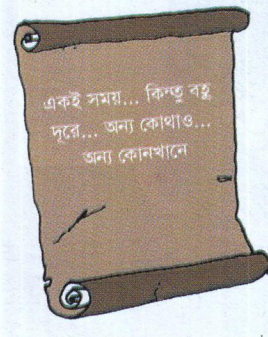 একই সময়... কিন্তু বহু
দূরে... অন্য কোথাও...
অন্য কোনখানে